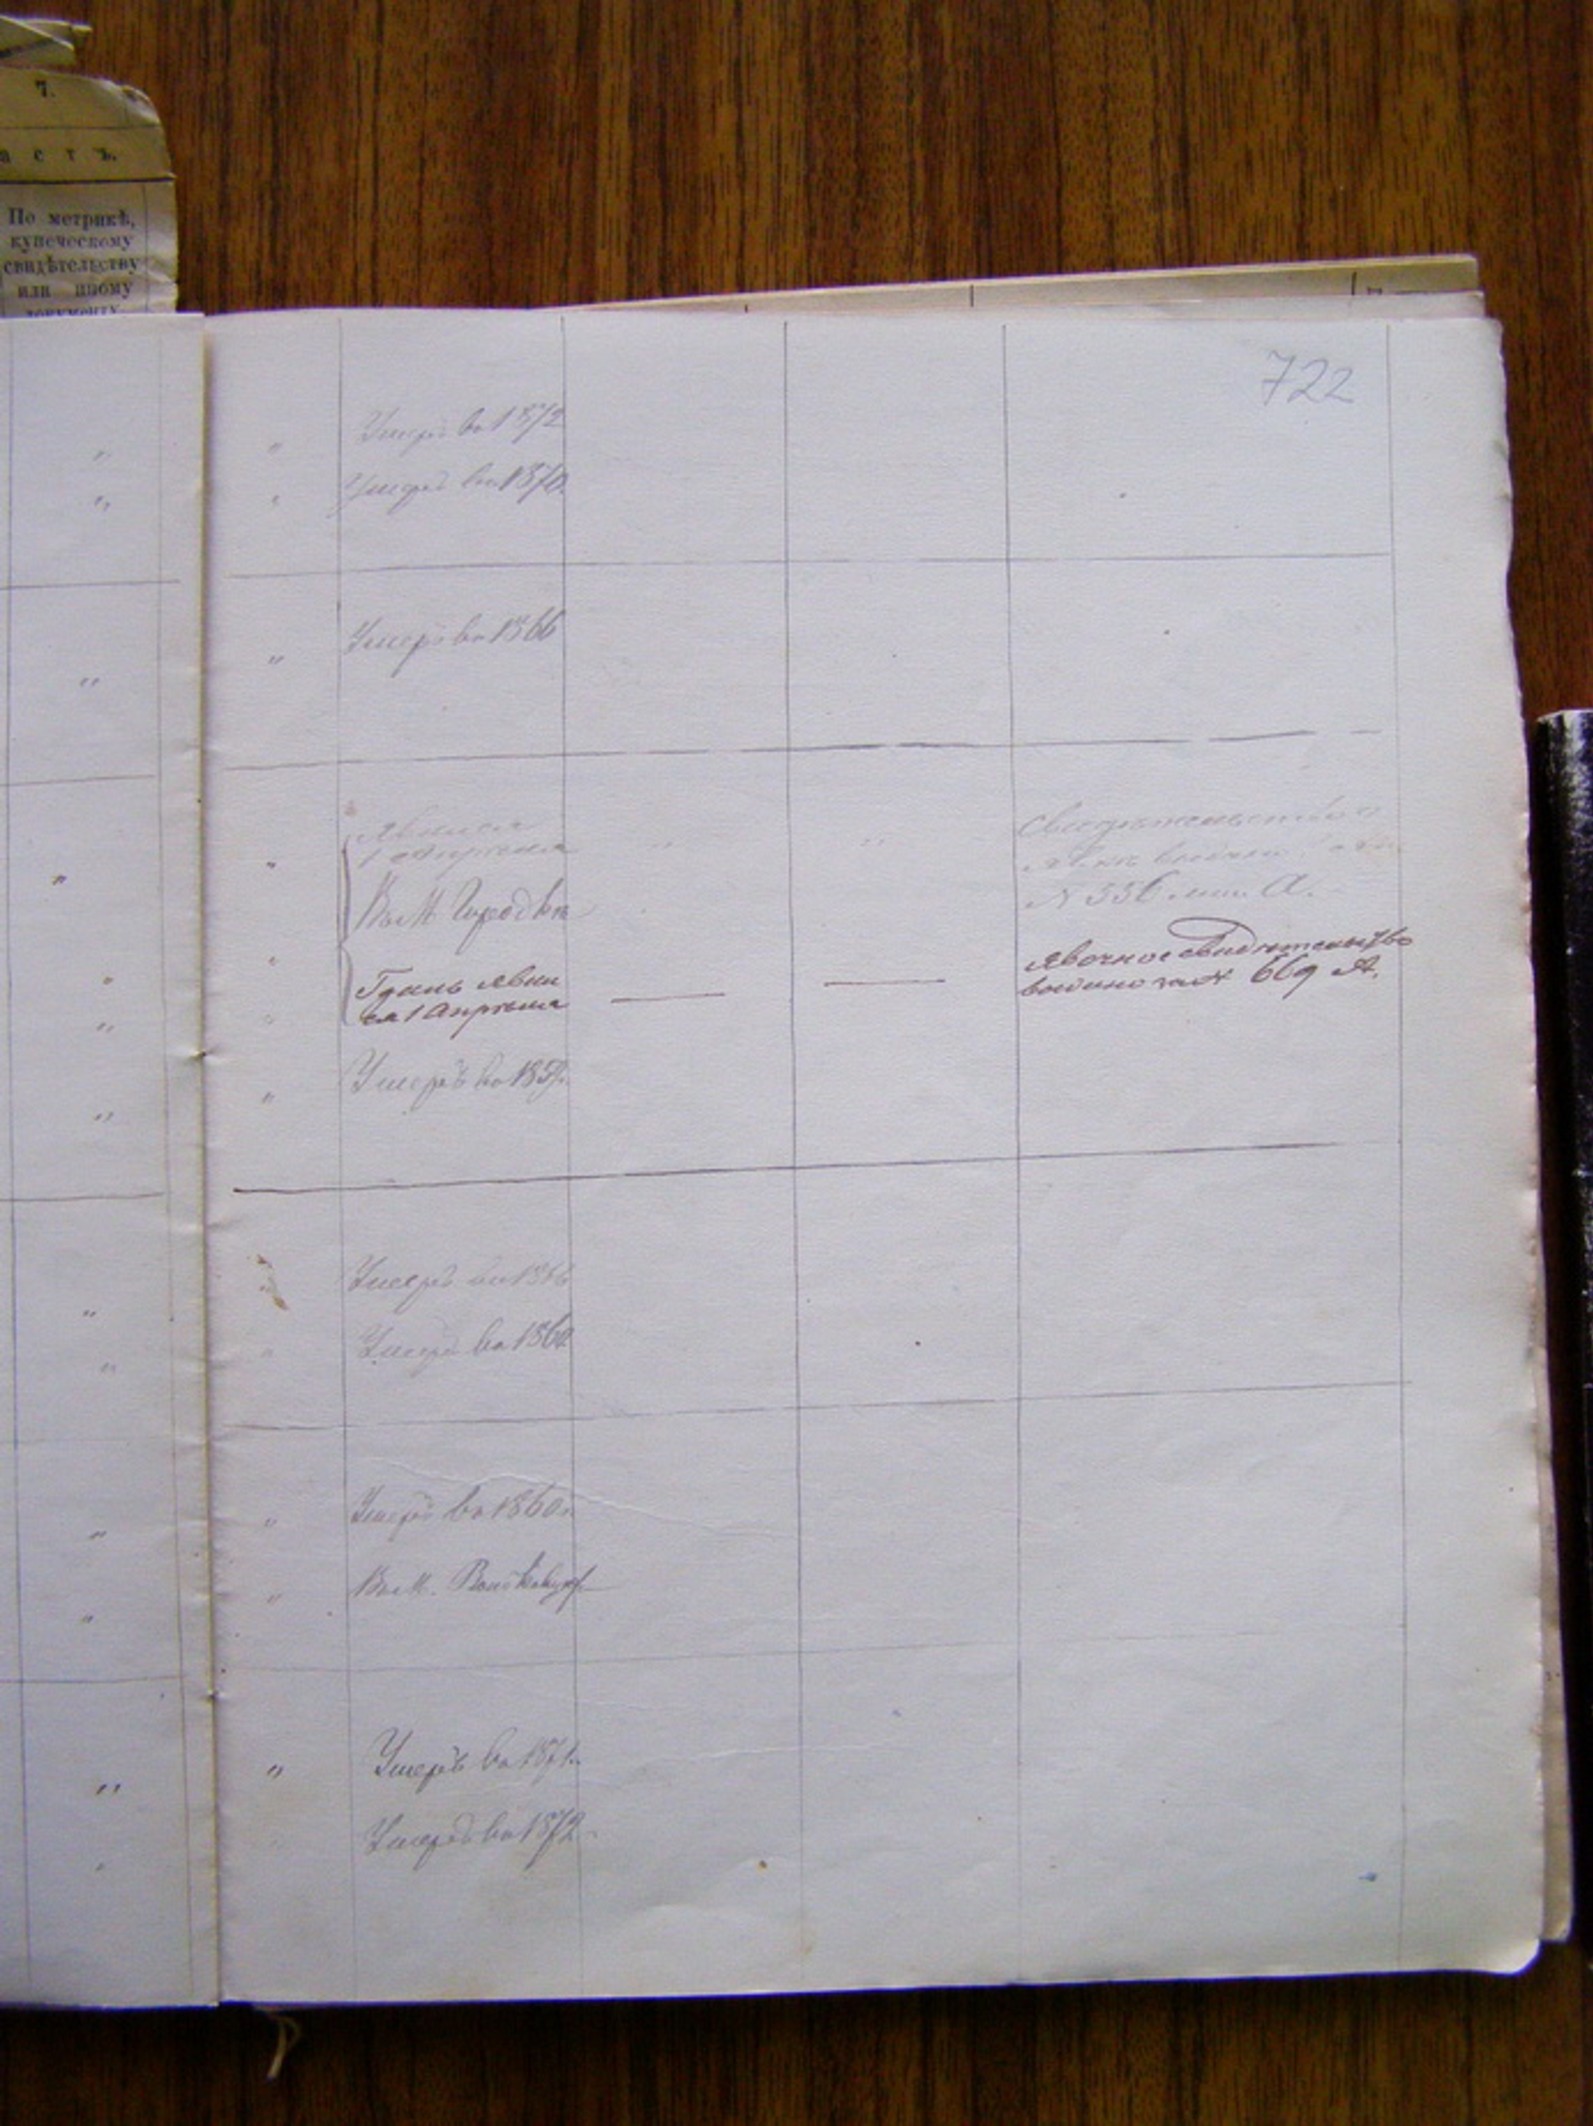 7.
а с т ъ.
По метрикѣ,
купеческому
свидѣтельству
или иному
документу
722
Умеръ въ 1872
Умеръ въ 1870.
Умеръ въ 1866
Явился
1 Апрѣля
Свидѣтельство о
явкѣ
№ 556 А.
Въ М. Городкѣ
явил
ся 1 Апрѣля
Явочное свидѣтельство
выдано за № 669 А.
Умеръ въ 185
Умеръ въ 1866
Умеръ въ 186
Умеръ въ 1860
Въ М.
Умеръ въ 1871
Умеръ въ 1872